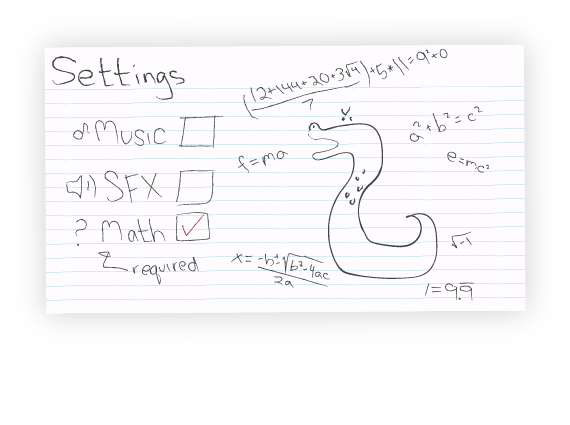 Settings
Music
SFX
? Math
required
(12+144+20+3√4)/7)+5*11=9²+0
f=ma
a²+b²=c²
e=mc²
√-1
x=-b±√b²-4ac/2a
1=9.9̅